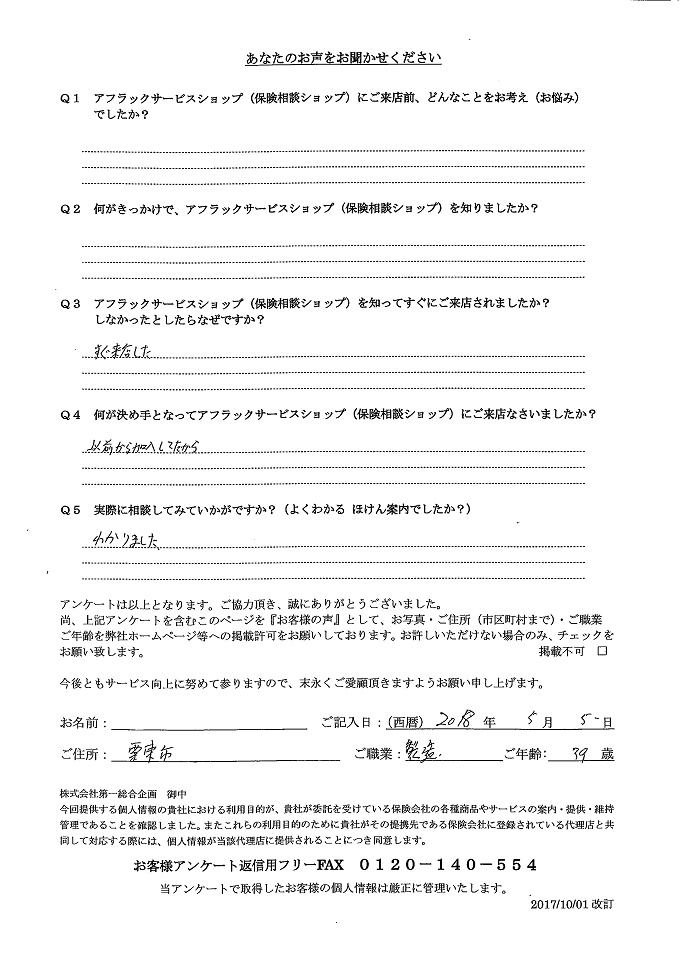 あなたのお声をお聞かせください
Q1 アフラックサービスショップ(保険相談ショップ)にご来店前、どんなことをお考え(お悩み)
でしたか?
Q2 何がきっかけで、アフラックサービスショップ(保険相談ショップ)を知りましたか?
Q3 アフラックサービスショップ(保険相談ショップ)を知ってすぐにご来店されましたか?
しなかったとしたらなぜですか?
すぐ来店した
Q4 何が決め手となってアフラックサービスショップ(保険相談ショップ)にご来店なさいましたか?
以前から加入してたから
Q5 実際に相談してみていかがですか?(よくわかる ほけん案内でしたか?)
わかりました
アンケートは以上となります。ご協力頂き、誠にありがとうございました。
尚、上記アンケートを含むこのページを『お客様の声』として、お写真・ご住所(市区町村まで)・ご職業
ご年齢を弊社ホームページ等への掲載許可をお願いしております。お許しいただけない場合のみ、チェックを
お願い致します。 掲載不可 □
今後ともサービス向上に努めて参りますので、末永くご愛顧頂きますようお願い申し上げます。
お名前: ご記入日:(西暦) 2018 年 5 月 5 日
ご住所: 栗東市 ご職業: 製造 ご年齢: 39 歳
株式会社第一総合企画 御中
今回提供する個人情報の貴社における利用目的が、貴社が委託を受けている保険会社の各種商品やサービスの案内・提供・維持
管理であることを確認しました。またこれらの利用目的のために貴社がその提携先である保険会社に登録されている代理店と共
同して対応する際には、個人情報が当該代理店に提供されることにつき同意します。
お客様アンケート返信用フリーFAX 0120-140-554
当アンケートで取得したお客様の個人情報は厳正に管理いたします。
2017/10/01 改訂